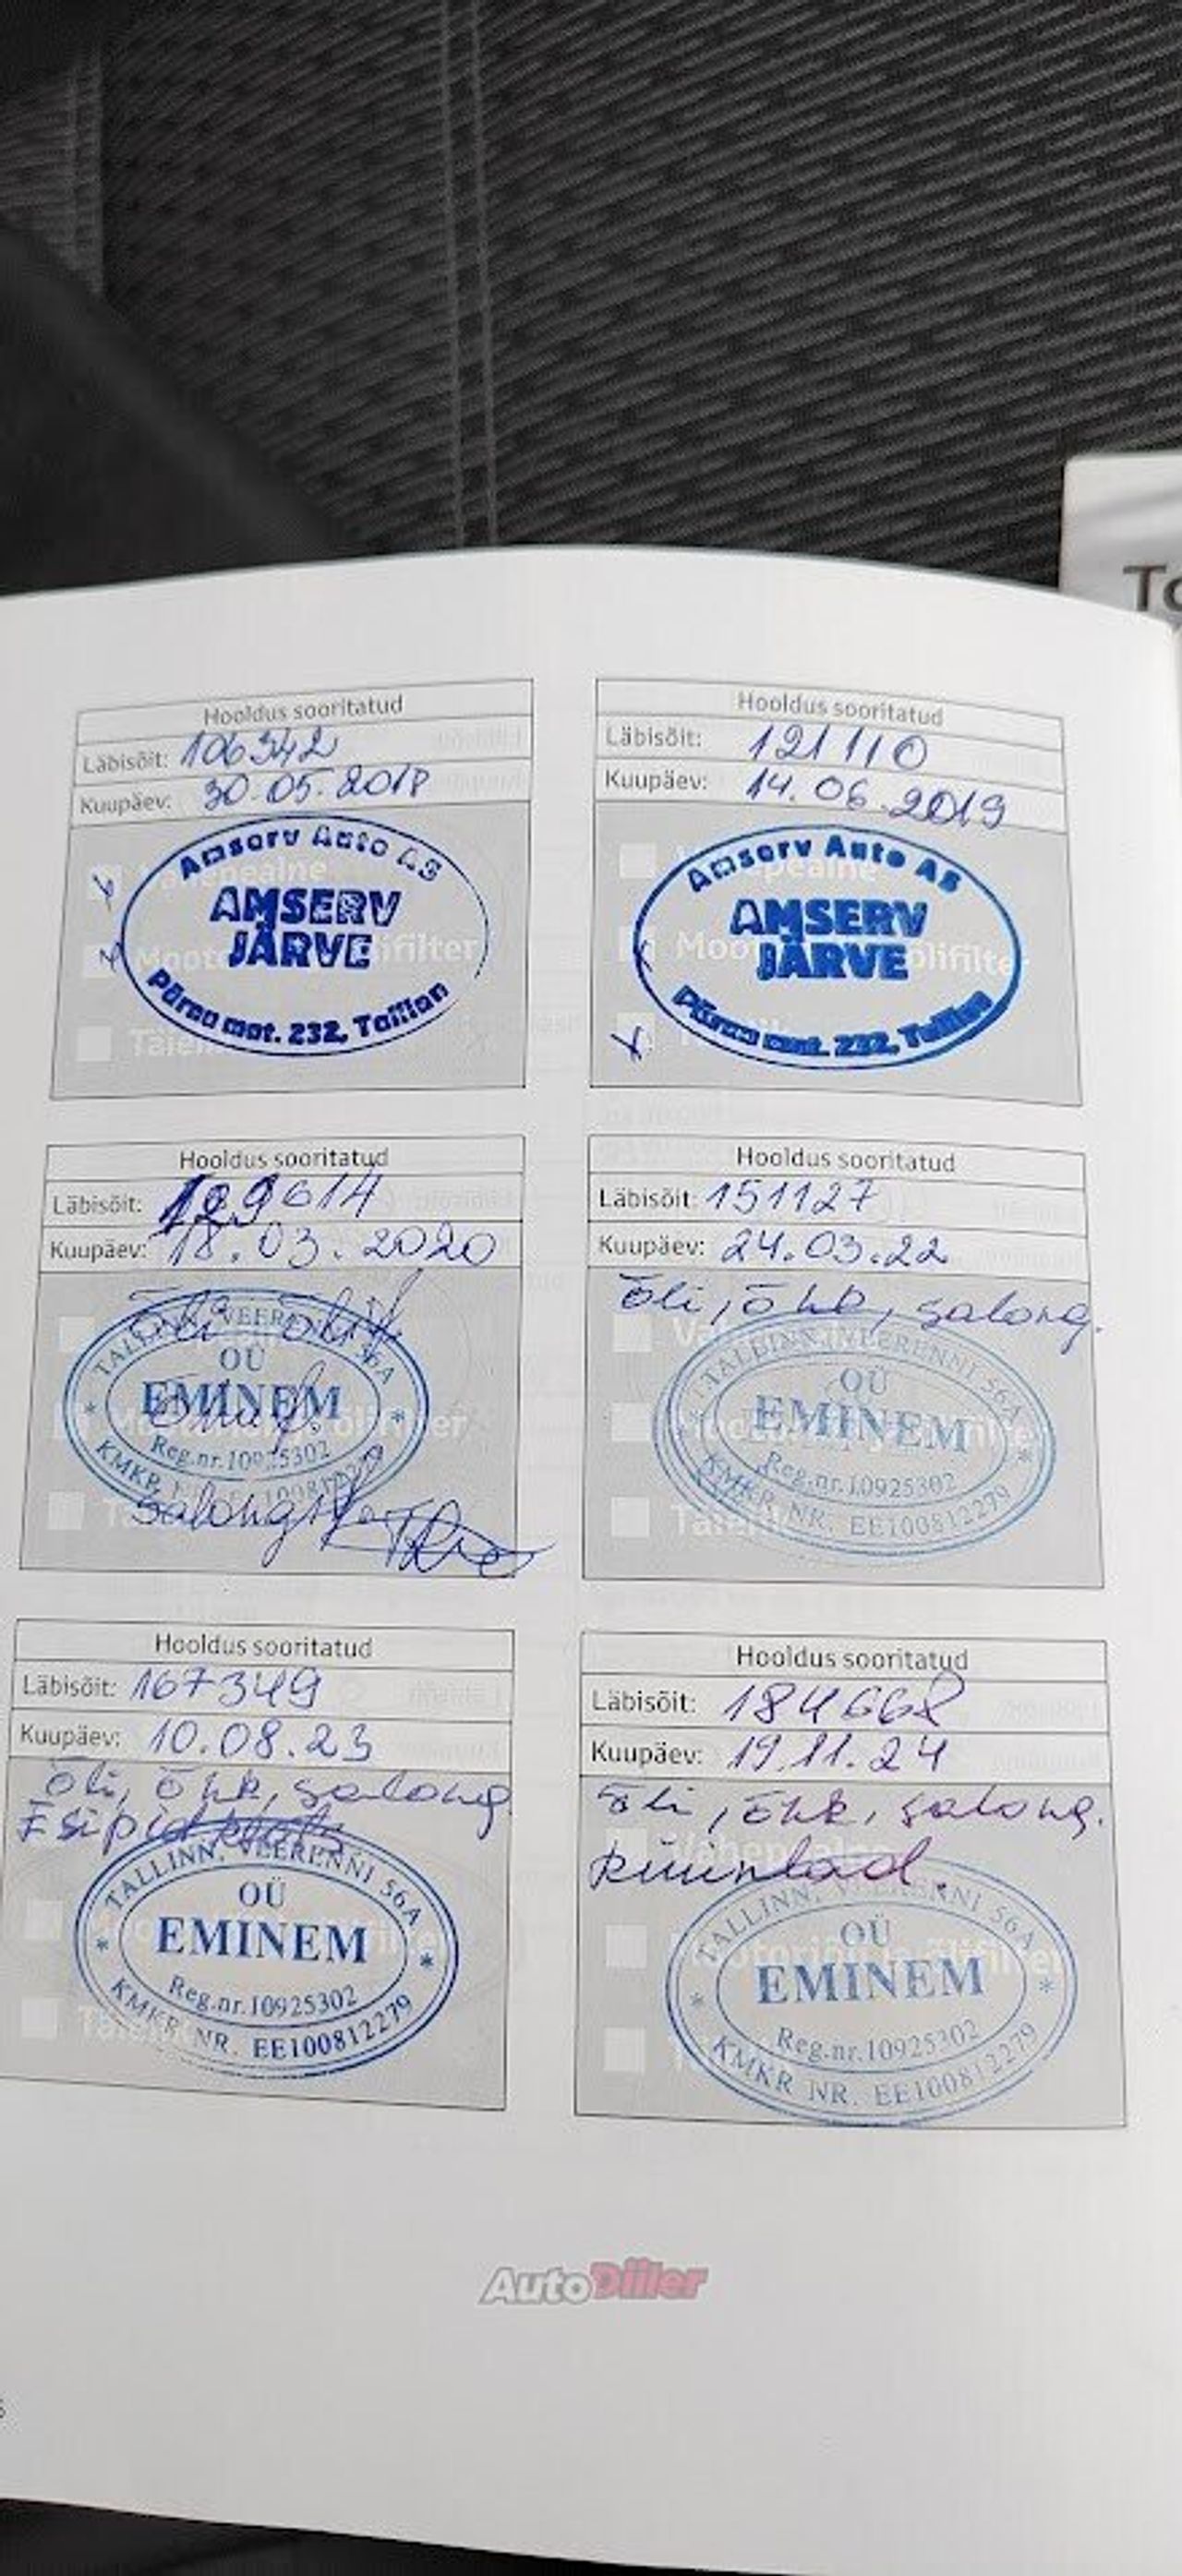 To
Hooldus sooritatud
Läbisõit: 106342
Kuupäev: 30.05.2018
Amserv Auto AS
AMSERV
JÄRVE
Pärnu mnt. 232, Tallinn
Hooldus sooritatud
Läbisõit: 121110
Kuupäev: 14.06.2019
Amserv Auto AS
AMSERV
JÄRVE
Pärnu mnt. 232, Tallinn
Hooldus sooritatud
Läbisõit: 129614
Kuupäev: 18.03.2020
Õli
TALLINN, VEERENNI 56A
OÜ
EMINEM
Reg.nr.10925302
KMKR
Hooldus sooritatud
Läbisõit: 151127
Kuupäev: 24.03.22
Õli, õhk, salong.
TALLINN, VEERENNI 56A
OÜ
EMINEM
Reg.nr.10925302
KMKR NR. EE100812279
Hooldus sooritatud
Läbisõit: 167349
Kuupäev: 10.08.23
Õli, õhk, salong
Esipid
TALLINN, VEERENNI 56A
OÜ
EMINEM
Reg.nr.10925302
KMKR NR. EE100812279
Hooldus sooritatud
Läbisõit: 184668
Kuupäev: 19.11.24
Õli, õhk, salong.
Küünlad.
TALLINN, VEERENNI 56A
OÜ
EMINEM
Reg.nr.10925302
KMKR NR. EE100812279
AutoDiiler